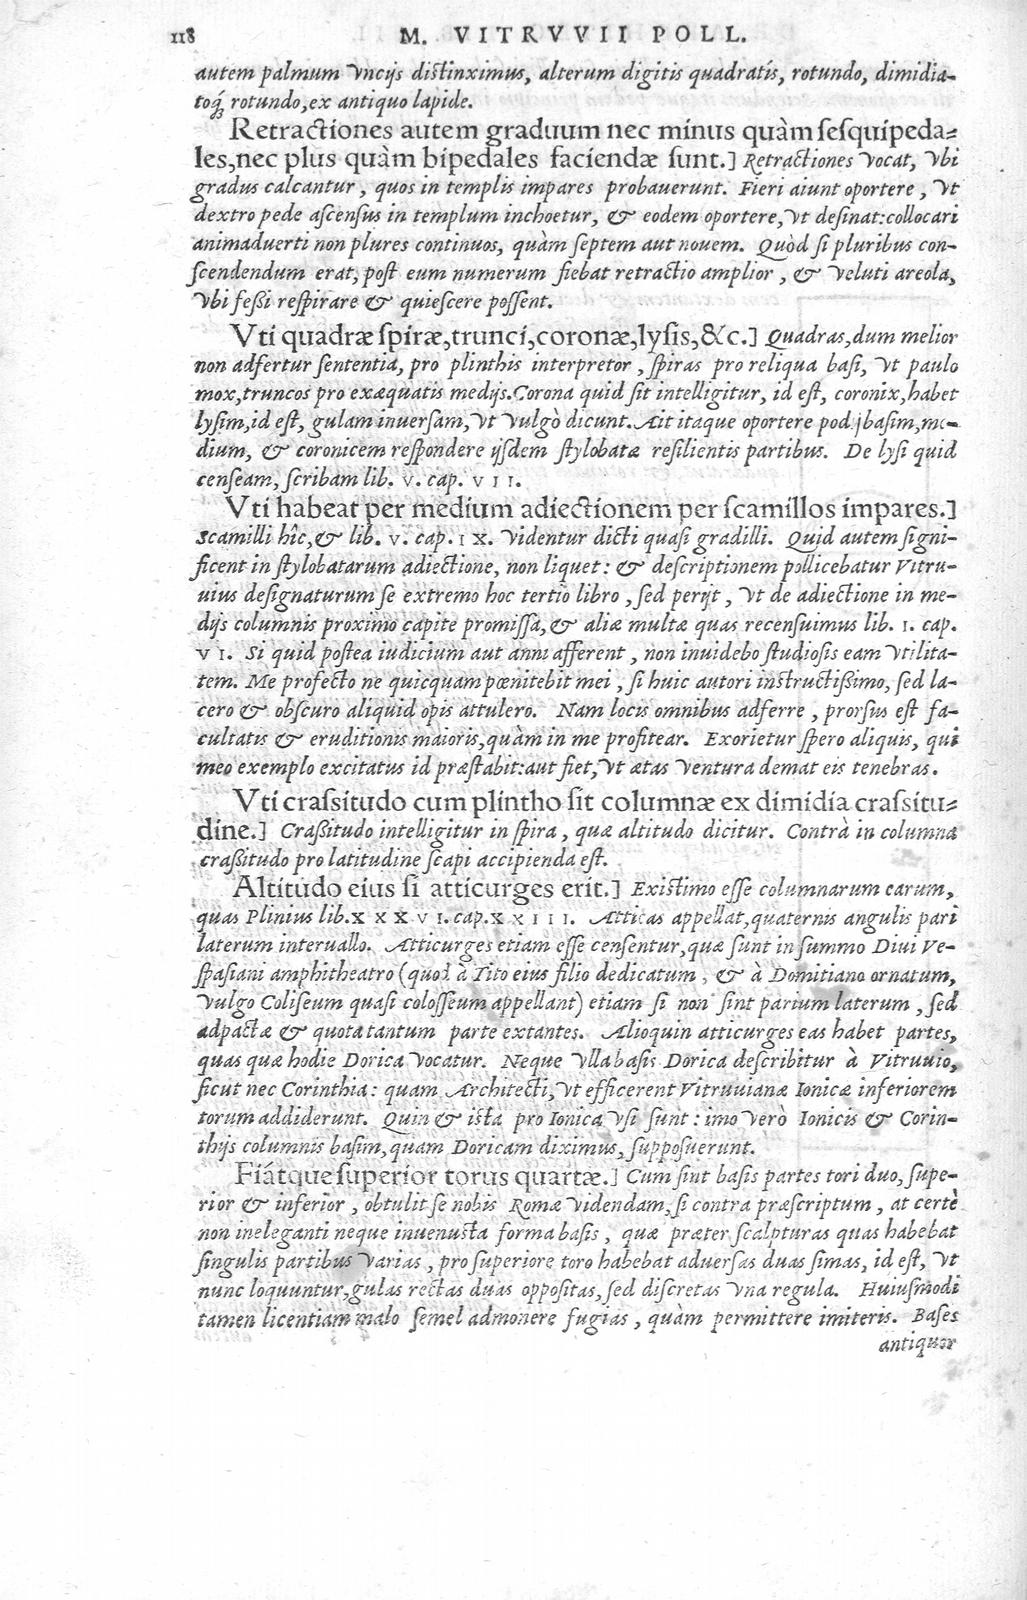 118 M. VITRVVII POLL.
autem palmum vncijs distinximus, alterum digitis quadratis, rotundo, dimidia-
toq́; rotundo, ex antiquo lapide.
Retractiones autem graduum nec minus quàm sesquipeda-
les, nec plus quàm bipedales faciendæ sunt.] Retractiones vocat, vbi
gradus calcantur, quos in templis impares probauerunt. Fieri aiunt oportere, vt
dextro pede ascensus in templum inchoetur, & eodem oportere, vt desinat: collocari
animaduerti non plures continuos, quàm septem aut nouem. Quòd si pluribus con-
scendendum erat, post eum numerum fiebat retractio amplior, & veluti areola,
vbi feßi respirare & quiescere possent.
Vti quadræ spiræ, trunci, coronæ, lysis, &c.] Quadras, dum melior
non adfertur sententia, pro plinthis interpretor, spiras pro reliqua basi, vt paulo
mox, truncos pro exæquatis medijs. Corona quid sit intelligitur, id est, coronix, habet
lysim, id est, gulam inuersam, vt vulgò dicunt. Ait itaque oportere podij basim, me-
dium, & coronicem respondere ijsdem stylobatæ resilientis partibus. De lysi quid
censeam, scribam lib. V. cap. VII.
Vti habeat per medium adiectionem per scamillos impares.]
Scamilli hîc, & lib. V. cap. IX. videntur dicti quasi gradilli. Quid autem signi-
ficent in stylobatarum adiectione, non liquet: & descriptionem pollicebatur Vitru-
uius designaturum se extremo hoc tertio libro, sed perijt, vt de adiectione in me-
dijs columnis proximo capite promissa, & aliæ multæ quas recensuimus lib. I. cap.
VI. Si quid postea iudicium aut anni afferent, non inuidebo studiosis eam vtilita-
tem. Me profecto ne quicquam pœnitebit mei, si huic autori instructißimo, sed la-
cero & obscuro aliquid opis attulero. Nam locis omnibus adferre, prorsus est fa-
cultatis & eruditionis maioris, quàm in me profitear. Exorietur spero aliquis, qui
meo exemplo excitatus id præstabit: aut fiet, vt ætas ventura demat eis tenebras.
Vti crassitudo cum plintho sit columnæ ex dimidia crassitu-
dine.] Craßitudo intelligitur in spira, quæ altitudo dicitur. Contrà in columna
craßitudo pro latitudine scapi accipienda est.
Altitudo eius si atticurges erit.] Existimo esse columnarum earum,
quas Plinius lib. XXXVI. cap. XXIII. Atticas appellat, quaternis angulis pari
laterum interuallo. Atticurges etiam esse censentur, quæ sunt in summo Diui Ve-
spasiani amphitheatro (quod à Tito eius filio dedicatum, & à Domitiano ornatum,
vulgo Coliseum quasi colosseum appellant) etiam si non sint parium laterum, sed
adpactæ & quota tantum parte extantes. Alioquin atticurges eas habet partes,
quas quæ hodie Dorica vocatur. Neque vlla basis Dorica describitur à Vitruuio,
sicut nec Corinthia: quam Architecti, vt efficerent Vitruuianæ Ionicæ inferiorem
torum addiderunt. Quin & ista pro Ionica vsi sunt: imo verò Ionicis & Corin-
thijs columnis basim, quam Doricam diximus, supposuerunt.
Fiátque superior torus quartæ.] Cum sint basis partes tori duo, supe-
rior & inferior, obtulit se nobis Romæ videndam, si contra præscriptum, at certè
non ineleganti neque inuenusta forma basis, quæ præter scalpturas quas habebat
singulis partibus varias, pro superiore toro habebat aduersas duas simas, id est, vt
nunc loquuntur, gulas rectas duas oppositas, sed discretas vna regula. Huiusmodi
tamen licentiam malo semel admonere fugias, quàm permittere imiteris. Bases
antiquor